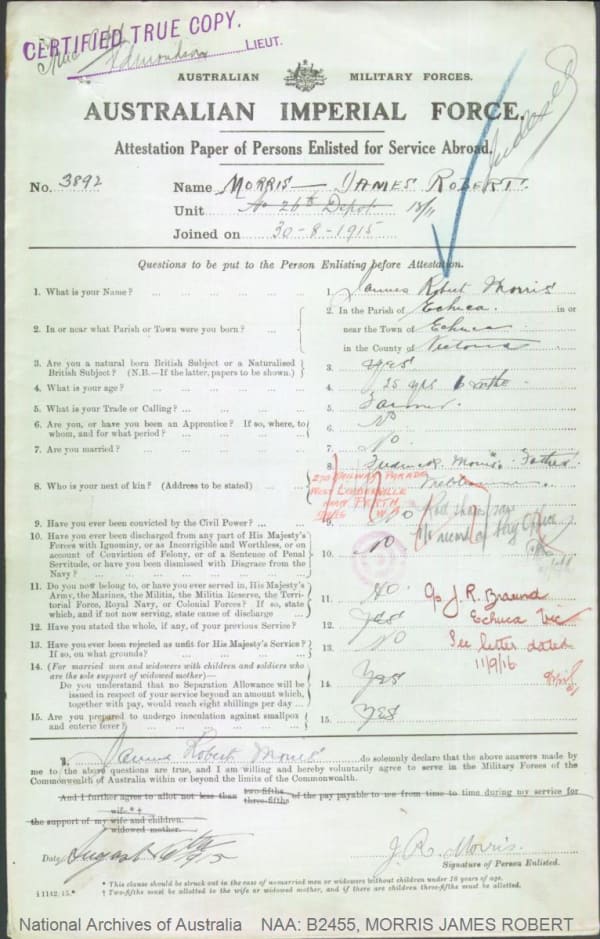 CERTIFIED TRUE COPY.
Edmondson LIEUT.
AUSTRALIAN MILITARY FORCES.
AUSTRALIAN IMPERIAL FORCE.
Attestation Paper of Persons Enlisted for Service Abroad.
Indexed
No. 3892 Name MORRIS — JAMES ROBERT.
Unit 26th Depot
Joined on 30-8-1915
Questions to be put to the Person Enlisting before Attestation.
1. What is your Name? ... 1. James Robert Morris
2. In or near what Parish or Town were you born? ... 2. In the Parish of Echuca. in or
near the Town of Echuca
in the County of Victoria
3. Are you a natural born British Subject or a Naturalised
British Subject? (N.B.—If the latter, papers to be shown.) 3. yes
4. What is your age? ... 4. 25 yrs 6 mths
5. What is your Trade or Calling? ... 5. Farmer.
6. Are you, or have you been an Apprentice? If so, where, to
whom, and for what period? ... 6. No
7. Are you married? ... 7. No.
8. Who is your next of kin? (Address to be stated) ... 8. Frederick Morris. Father
270 RAILWAY PARADE
WEST LEEDERVILLE
PERTH
W.A.
9. Have you ever been convicted by the Civil Power? ... 9. No
10. Have you ever been discharged from any part of His Majesty's
Forces with Ignominy, or as Incorrigible and Worthless, or on
account of Conviction of Felony, or of a Sentence of Penal
Servitude, or have you been dismissed with Disgrace from the
Navy? ... 10. No
11. Do you now belong to, or have you ever served in, His Majesty's
Army, the Marines, the Militia, the Militia Reserve, the Terri-
torial Force, Royal Navy, or Colonial Forces? If so, state
which, and if not now serving, state cause of discharge 11. No.
c/o J. R. Braund
Echuca Vic
See letter dated
11/9/16
12. Have you stated the whole, if any, of your previous Service? 12. Yes
13. Have you ever been rejected as unfit for His Majesty's Service?
If so, on what grounds? ... 13. No
14. (For married men and widowers with children and soldiers who
are the sole support of widowed mother)—
Do you understand that no Separation Allowance will be
issued in respect of your service beyond an amount which,
together with pay, would reach eight shillings per day ... 14. Yes
15. Are you prepared to undergo inoculation against smallpox
and enteric fever? ... 15. Yes
I, James Robert Morris do solemnly declare that the above answers made by
me to the above questions are true, and I am willing and hereby voluntarily agree to serve in the Military Forces of the
Commonwealth of Australia within or beyond the limits of the Commonwealth.
And I further agree to allot not less than two-fifths three-fifths of the pay payable to me from time to time during my service for
the support of my wife*† wife and children. widowed mother.
Date August 16th 1915 J. R. Morris.
Signature of Person Enlisted.
* This clause should be struck out in the case of unmarried men or widowers without children under 18 years of age.
† Two-fifths must be allotted to the wife or widowed mother, and if there are children three-fifths must be allotted.
National Archives of Australia NAA: B2455, MORRIS JAMES ROBERT